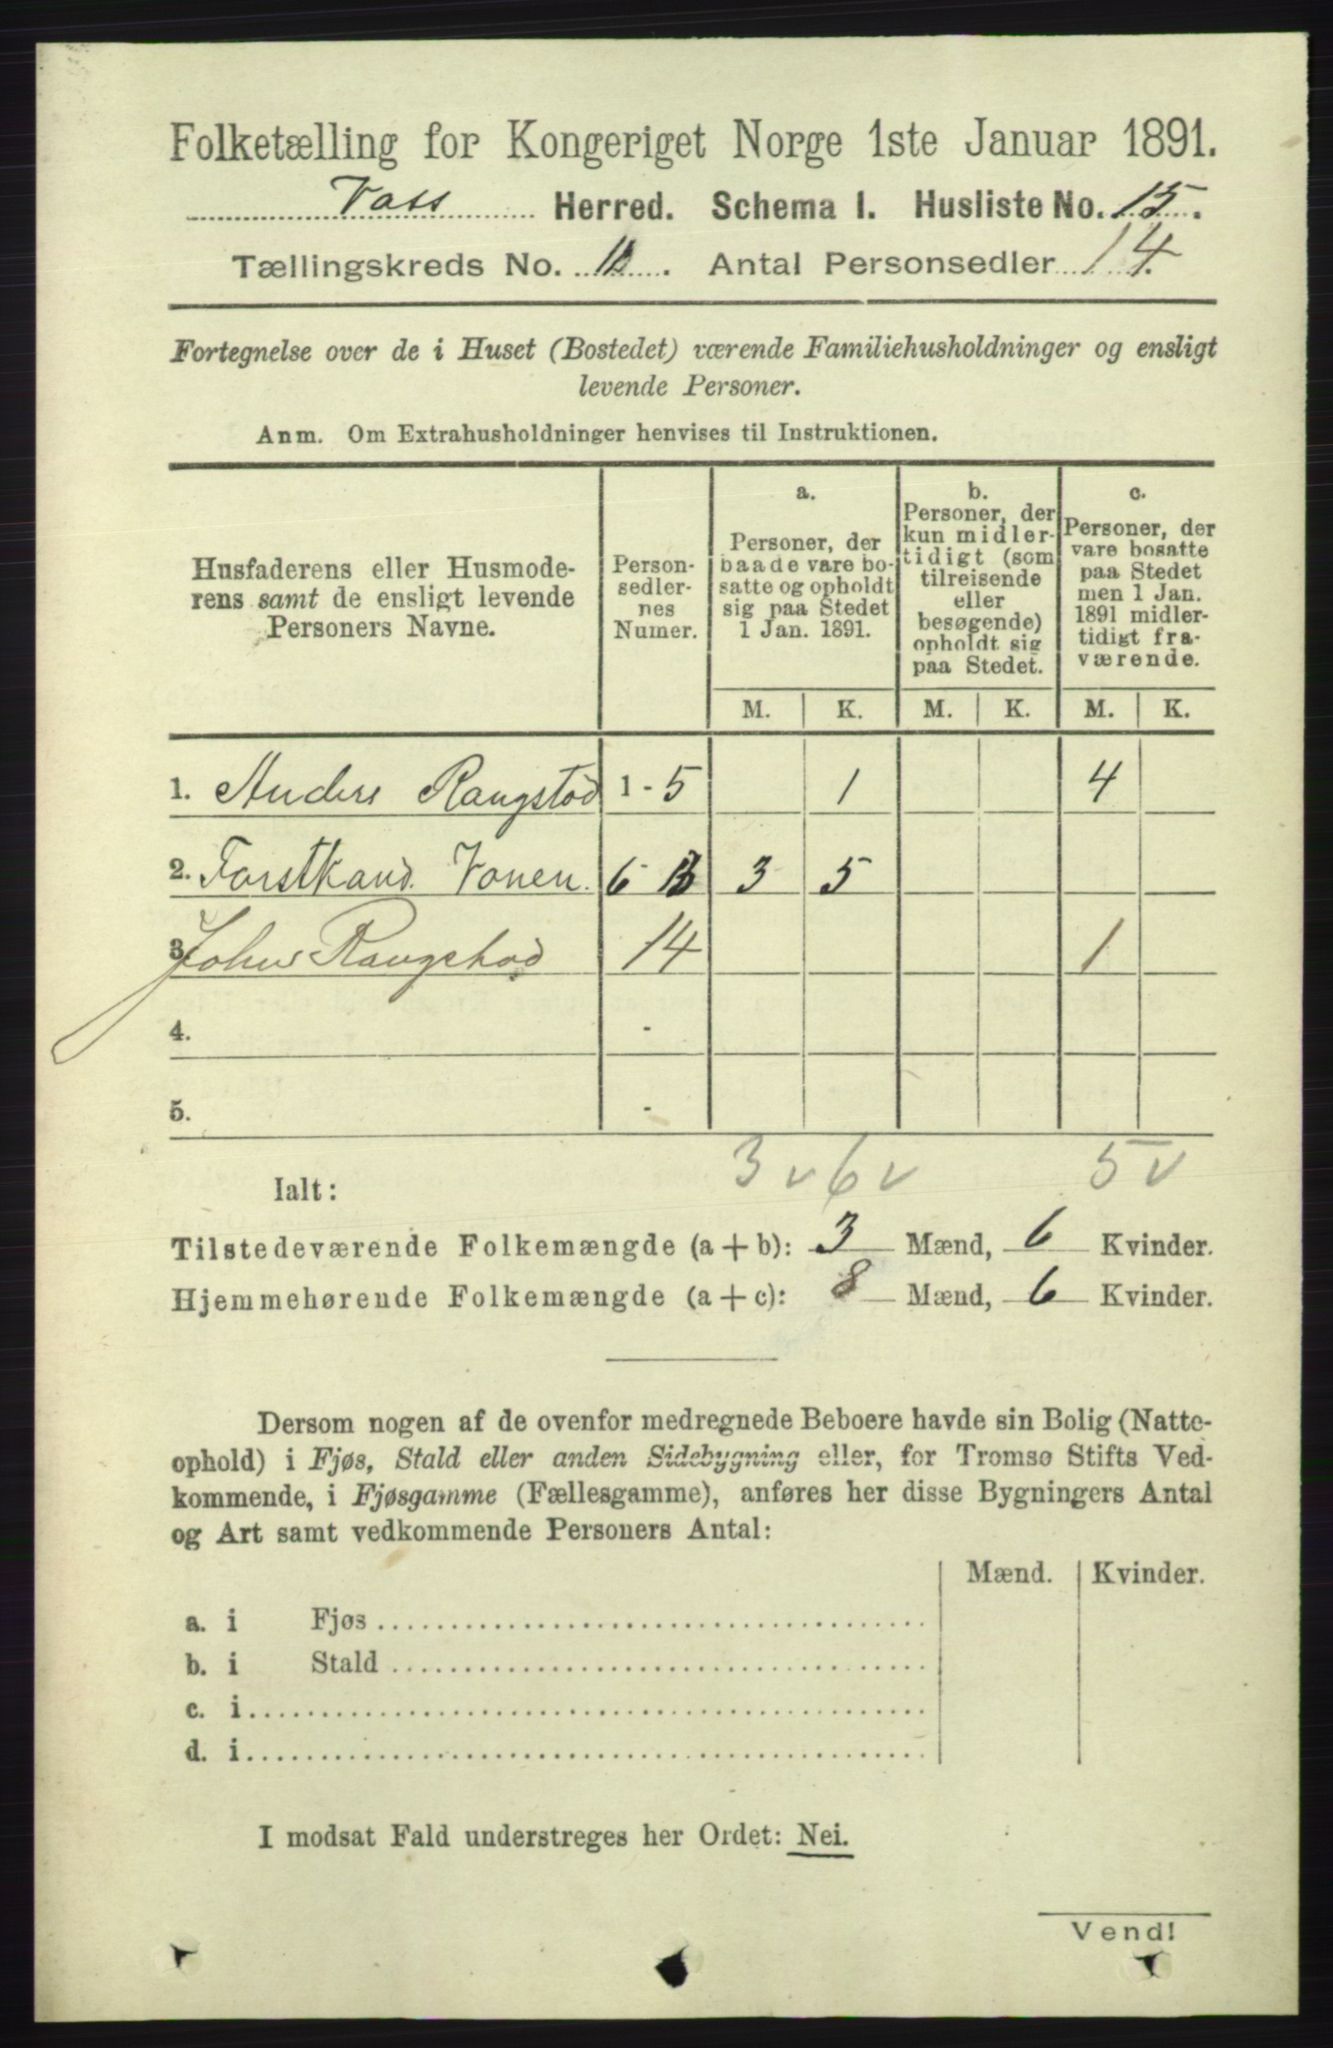 Folketælling for Kongeriget Norge 1ste Januar 1891.
Voss Herred. Schema I. Husliste No. 15.
Tællingskreds No. . Antal Personsedler 14.
Fortegnelse over de i Huset (Bostedet) værende Familiehusholdninger og ensligt
levende Personer.
Anm. Om Extrahusholdninger henvises til Instruktionen.
Husfaderens eller Husmode-
rens samt de ensligt levende
Personers Navne.
Person-
sedler-
nes
Numer.
a.
Personer, der
baade vare bo-
satte og opholdt
sig paa Stedet
1 Jan. 1891.
b.
Personer, der
kun midler-
tidigt (som
tilreisende
eller
besøgende)
opholdt sig
paa Stedet.
c.
Personer, der
vare bosatte
paa Stedet
men 1 Jan.
1891 midler-
tidigt fra-
værende.
M. K. M. K. M. K.
1. Anders Rangstod 1 - 5 1 4
2. Forstkand. Vonen. 6 - 13 3 5
3. Johns Rangstod 14 1
4. -
5. -
3 v 6 v 5 v
Ialt:
Tilstedeværende Folkemængde (a + b): 3 Mænd, 6 Kvinder.
Hjemmehørende Folkemængde (a + c): 8 Mænd, 6 Kvinder.
Dersom nogen af de ovenfor medregnede Beboere havde sin Bolig (Natte-
ophold) i Fjøs, Stald eller anden Sidebygning eller, for Tromsø Stifts Ved-
kommende, i Fjøsgamme (Fællesgamme), anføres her disse Bygningers Antal
og Art samt vedkommende Personers Antal:
Mænd. Kvinder.
a. i Fjøs
b. i Stald
c. i
d. i
I modsat Fald understreges her Ordet: Nei.
Vend!